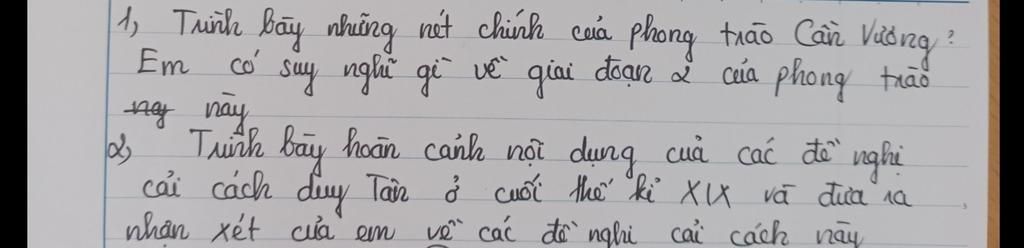 1, Trình bày những nét chính của phong trào Cần Vương?
Em có suy nghĩ gì về giai đoạn 2 của phong trào
ng này
2, Trình bày hoàn cảnh nội dụng của các đề nghị
cải cách duy Tân ở cuối thế kỉ XIX và đưa ra
nhận xét của em về các đề nghị cải cách này